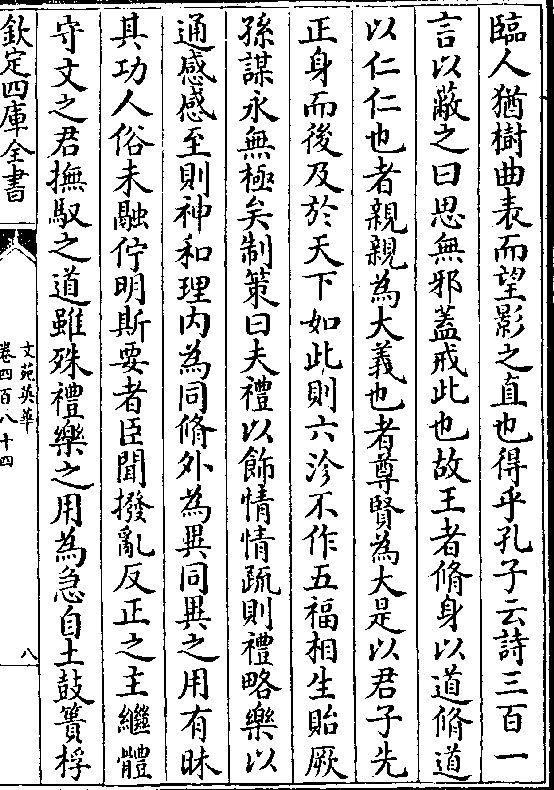 臨人猶樹曲表而望影之直也得乎孔子云詩三百一
言以蔽之曰思無邪蓋戒此也故王者脩身以道脩道
以仁仁也者親親為大義也者尊賢為大是以君子先
正身而後及於天下如此則六沴不作五福相生貽厥
孫謀永無極矣制策曰夫禮以飾情情疏則禮略樂以
通感感至則神和理内為同脩外為異同異之用有昧
其功人俗未融佇明斯要者臣聞撥亂反正之主繼體
守文之君撫馭之道雖殊禮樂之用為急自土鼓簣桴
欽定四庫全書
文苑英華
卷四百八十四
八